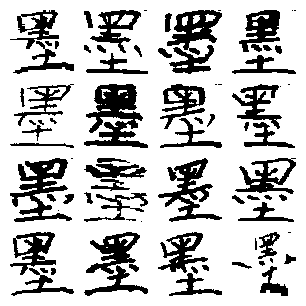 墨墨墨墨
墨墨墨墨
墨墨墨墨
墨墨墨墨